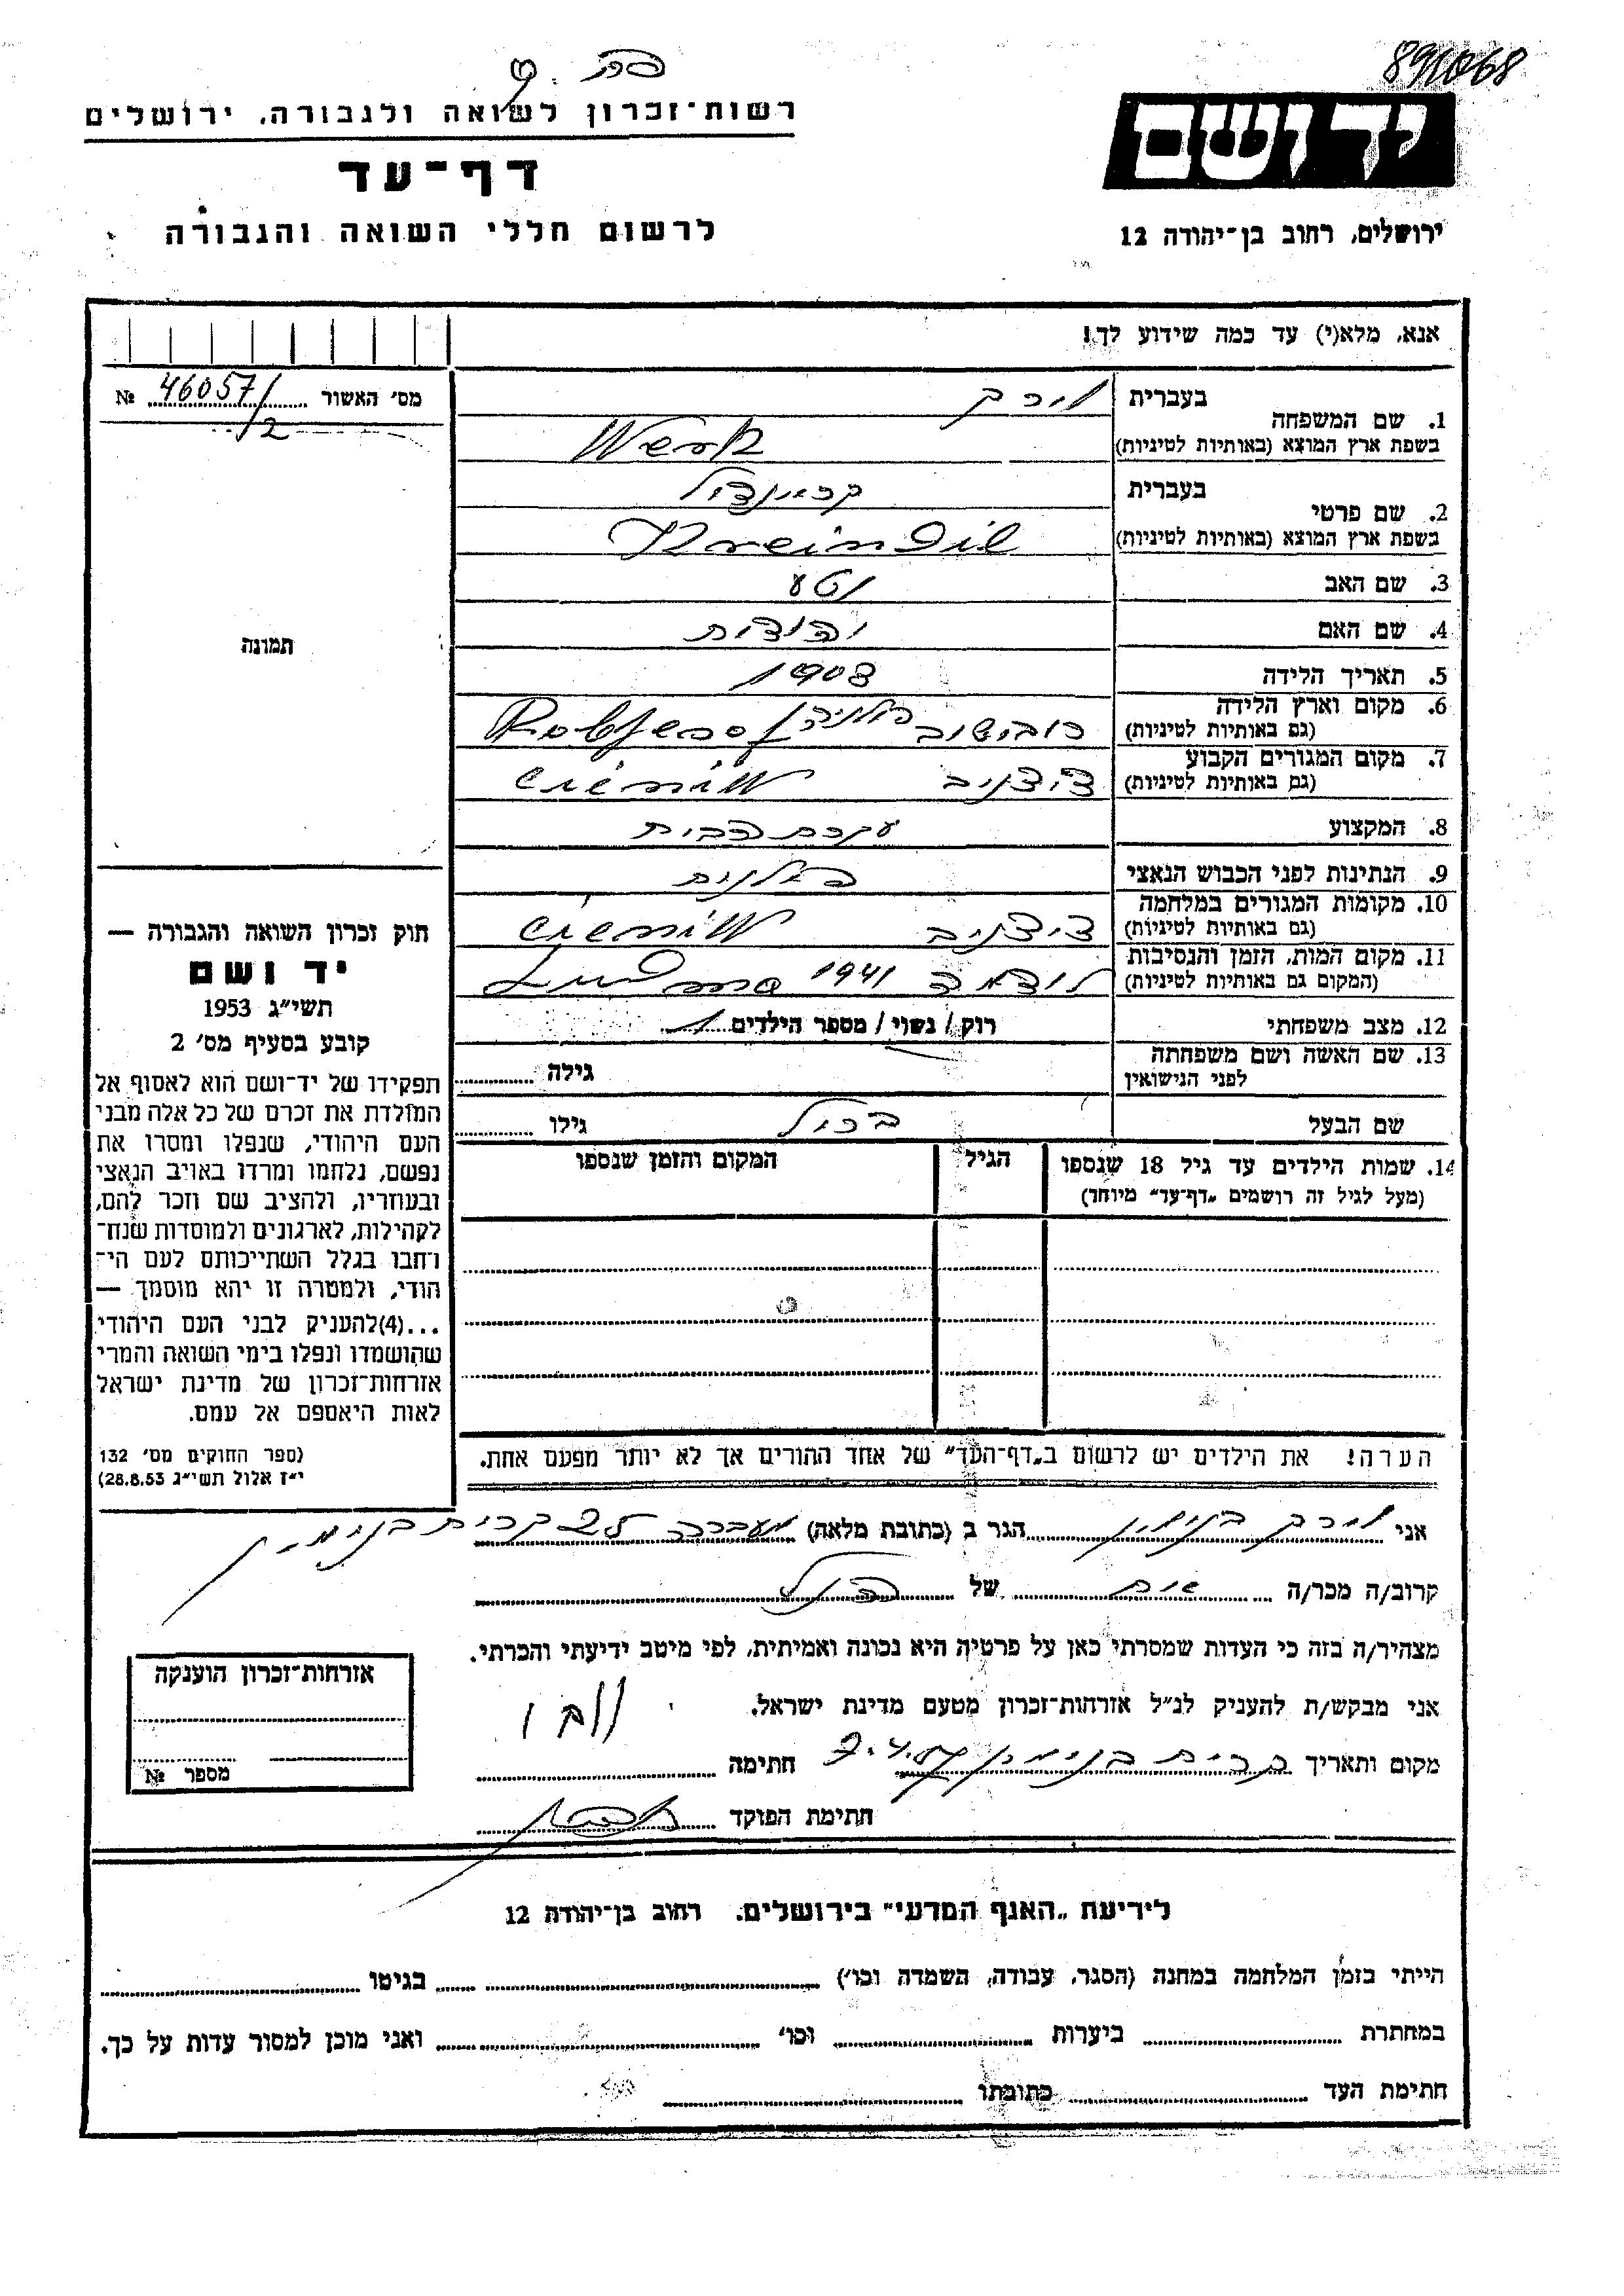 891068
יד ושם
ירושלים, רחוב בן־יהודה 12
רשות־זכרון לשואה ולגבורה, ירושלים
דף־עד
לרשום חללי השואה והגבורה
אנא, מלא(י) עד כמה שידוע לך!
מס׳ האשור 46057/ №
/2
1. שם המשפחה
בעברית ורק
בשפת ארץ המוצא (באותיות לטיניות) Werk
2. שם פרטי
בעברית קריינדיל
בשפת ארץ המוצא (באותיות לטיניות) Kreindil
3. שם האב נטע
4. שם האם יהודית
5. תאריך הלידה 1903
6. מקום וארץ הלידה
(גם באותיות לטיניות) רובישוב פולניה
7. מקום המגורים הקבוע
(גם באותיות לטיניות)
8. המקצוע עקרת הבית
9. הנתינות לפני הכבוש הנאצי פולנית
10. מקומות המגורים במלחמה
(גם באותיות לטיניות)
11. מקום המות, הזמן והנסיבות
(המקום גם באותיות לטיניות) 1941
12. מצב משפחתי רוק / נשוי / מספר הילדים 1
13. שם האשה ושם משפחתה
לפני הנישואין גילה
שם הבעל גילו
14. שמות הילדים עד גיל 18 שנספו הגיל המקום והזמן שנספו
(מעל לגיל זה רושמים „דף־עד״ מיוחד)
תמונה
חוק זכרון השואה והגבורה —
יד ושם
תשי״ג 1953
קובע בסעיף מס׳ 2
תפקידו של יד־ושם הוא לאסוף אל
המולדת את זכרם של כל אלה מבני
העם היהודי, שנפלו ומסרו את
נפשם, נלחמו ומרדו באויב הנאצי
ובעוזריו, ולהציב שם וזכר להם,
לקהילות, לארגונים ולמוסדות שנח־
רחבו בגלל השתייכותם לעם הי־
הודי, ולמטרה זו יהא מוסמך —
...(4)להעניק לבני העם היהודי
שהושמדו ונפלו בימי השואה והמרי
אזרחות־זכרון של מדינת ישראל
לאות היאספם אל עמם.
(ספר החוקים מס׳ 132
י״ז אלול תשי״ג 28.8.53)
הערה! את הילדים יש לרשום ב„דף־העד״ של אחד ההורים אך לא יותר מפעם אחת.
אני ורק בנימין הגר ב (כתובת מלאה) מעברה קרית בנימין
קרוב/ה מכר/ה של
מצהיר/ה בזה כי העדות שמסרתי כאן על פרטיה היא נכונה ואמיתית, לפי מיטב ידיעתי והכרתי.
אני מבקש/ת להעניק לנ״ל אזרחות־זכרון מטעם מדינת ישראל.
מקום ותאריך קרית בנימין חתימה
חתימת הפוקד
אזרחות־זכרון הוענקה
מספר №
לידיעת „האגף המדעי״ בירושלים. רחוב בן־יהודה 12
הייתי בזמן המלחמה במחנה (הסגר, עבודה, השמדה וכו׳) בגיטו
במחתרת ביערות וכו׳ ואני מוכן למסור עדות על כך.
חתימת העד כתובתו